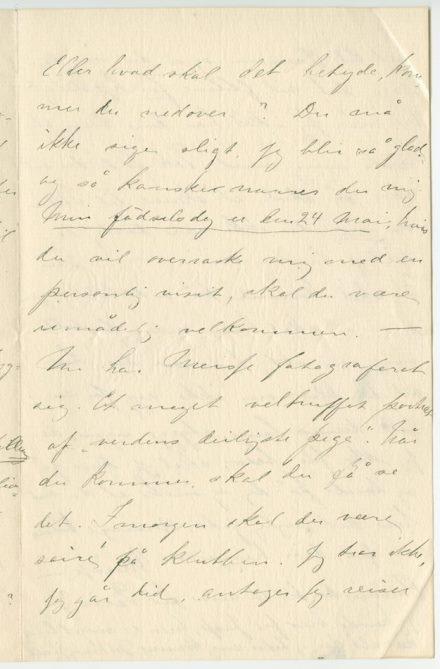 Eller hvad skal det betyde, "kom-
mer du nedover"? Du må
ikke sige sligt. Jeg blir så glad,
og så kanske narres du mig.
Min fødselsdag er den 24 Mai, hvis
du vil overraske mig med en
personlig visit, skal du være
umådelig velkommen. —
Nu har fotograferet
sig. Et meget veltruffet portræt
af "verdens deiligste pige". Når
du kommer, skal du få se
det. Imorgen skal der være
soiré på klubben. Jeg tror ikke,
jeg går did, antager jeg reiser